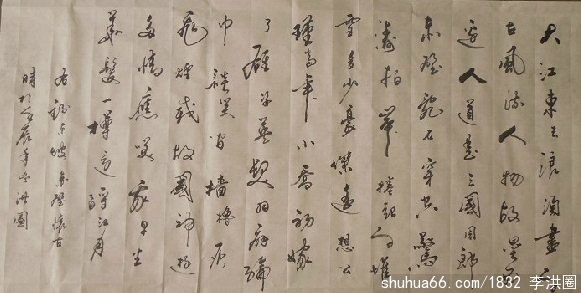 大江東去浪淘盡千
古風流人物故壘西
邊人道是三國周郎
赤壁亂石穿空驚
濤拍岸捲起
雪多少豪傑遙想公
瑾當年小喬初嫁
了雄姿英發羽扇綸
巾談笑間檣櫓灰
飛煙滅故國神遊
多情應笑我早生
華髮一樽還酹江月
東坡赤壁懷古
時於
shuhua66.com/1832 李洪圈